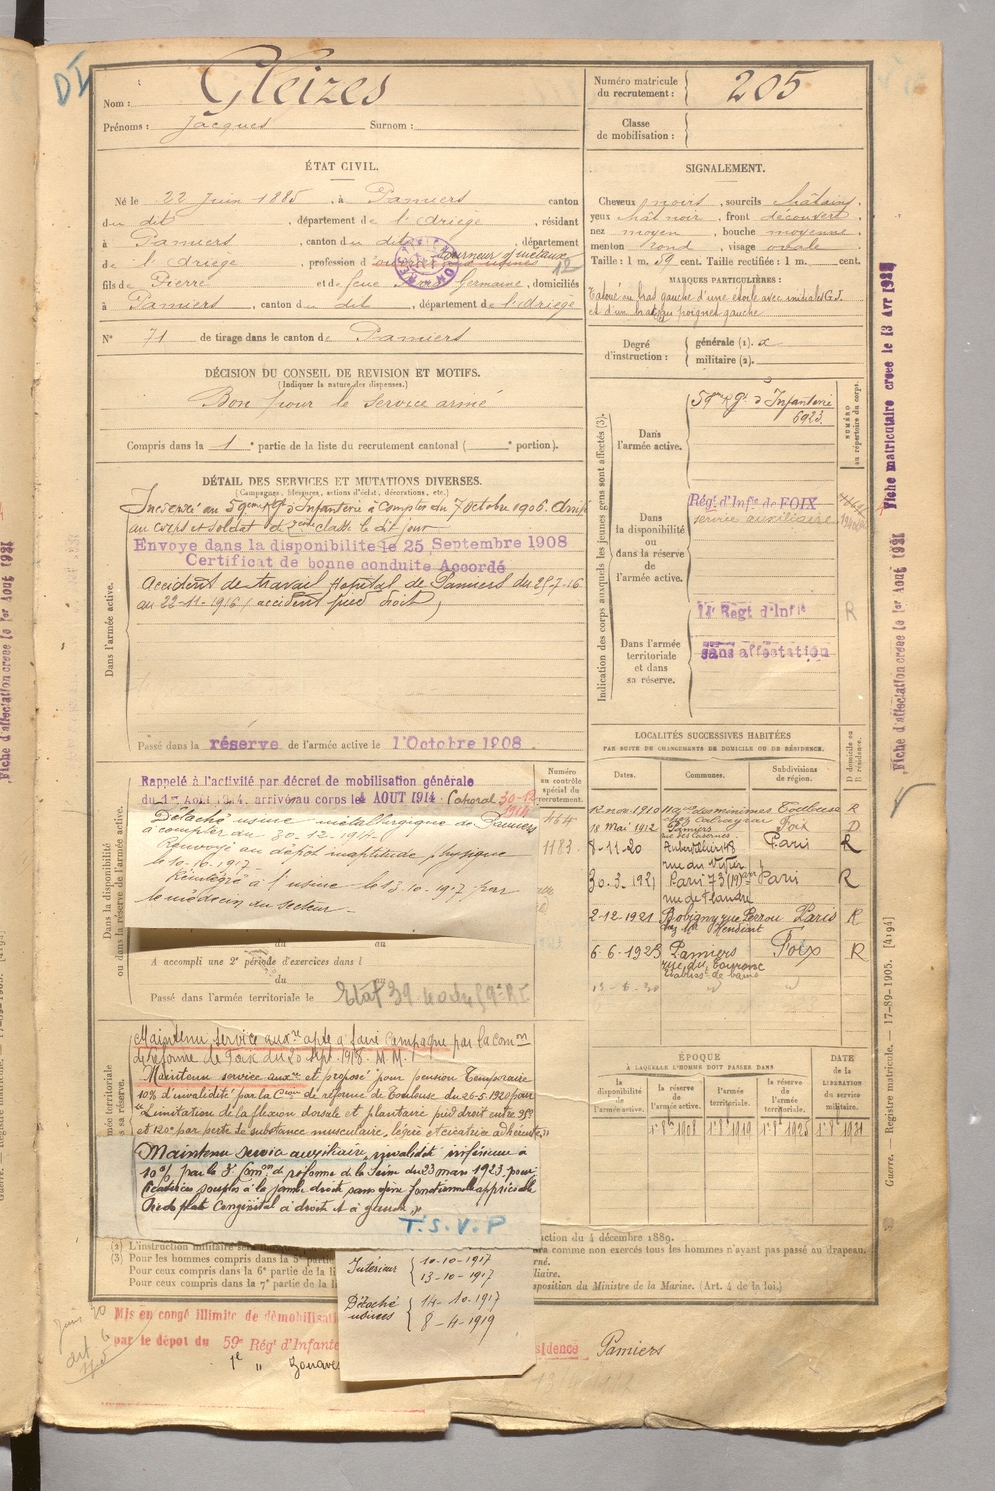 DI
Nom : Gleizes
Prénoms : Jacques Surnom :
Numéro matricule du recrutement : 205
Classe de mobilisation :
ÉTAT CIVIL.
Né le 22 Juin 1885, à Pamiers canton
du dit, département de l'Ariège, résidant
à Pamiers, canton du dit, département
de l'Ariège, profession d' tourneur s/métaux
fils de Pierre et de feue Germaine, domiciliés
à Pamiers, canton du dit, département de l'Ariège
N° 71 de tirage dans le canton de Pamiers
SIGNALEMENT.
Cheveux noirs, sourcils châtains
yeux chât noir, front découvert
nez moyen, bouche moyenne
menton rond, visage ovale
Taille : 1 m. 59 cent. Taille rectifiée : 1 m. cent.
MARQUES PARTICULIÈRES :
Tatoué au bras gauche d'une étoile avec initiales G.J.
et d'un au poignet gauche
Degré d'instruction :
générale (1).
militaire (2).
DÉCISION DU CONSEIL DE REVISION ET MOTIFS.
(Indiquer la nature des dispenses.)
Bon pour le service armé
Compris dans la 1e partie de la liste du recrutement cantonal ( e portion).
DÉTAIL DES SERVICES ET MUTATIONS DIVERSES.
(Campagnes, blessures, actions d'éclat, décorations, etc.)
Dans l'armée active.
Incorporé au 59ème Rgt d'Infanterie à compter du 7 octobre 1906. Arrivé
au corps et soldat de 2ème classe le dit jour
Envoyé dans la disponibilité le 25 Septembre 1908
Certificat de bonne conduite Accordé
Accident de travail Hopital de Pamiers du 25-7-16
au 22-11-1916 (accident pied droit)
Passé dans la réserve de l'armée active le 1 Octobre 1908.
Indication des corps auxquels les jeunes gens sont affectés (3).
Dans l'armée active.
59ème Rgt d'Infanterie
6923.
NUMÉRO au répertoire du corps.
Dans la disponibilité ou dans la réserve de l'armée active.
Régt d'Infie de FOIX
service auxiliaire
Dans l'armée territoriale et dans sa réserve.
14e Regt d'Infie
R
sans affectation
Fiche matriculaire créée le 13 Avr 1932
Fiche d'affectation créée le 1er Aout 1931
LOCALITÉS SUCCESSIVES HABITÉES
PAR SUITE DE CHANGEMENTS DE DOMICILE OU DE RÉSIDENCE.
Dates. Communes. Subdivisions de région. D domicile ou R résidence.
12 nov. 1910 Toulouse R
18 Mai 1912 Pamiers Foix D
8-11-20 Aubervilliers Paris R
rue du Vivier
30.3.1921 Paris 73 (19e) Paris R
rue de Flandre
2-12-1921 Bobigny rue Perron Paris R
6-6-1923 Pamiers Foix R
13-6-30
Dans la disponibilité ou dans la réserve de l'armée active.
Rappelé à l'activité par décret de mobilisation générale
du 1er Aout 1914. arrivé au corps le 4 AOUT 1914. Caporal 30-12 1914
Détaché usine métallurgique de Pamiers
à compter du 30-12-1914.
Renvoyé au dépôt inaptitude physique
le 10-10-1917
Réintégré à l'usine le 13-10-1917 par
le médecin du secteur.
Numéro au contrôle spécial du recrutement.
464
1183
du au
A accompli une 2e période d'exercices dans l
du au
Passé dans l'armée territoriale le
Maintenu service auxre apte à faire campagne par la comon
de réforme de Foix du 20 sept. 1918. M.M.
Maintenu service auxre et proposé pour pension temporaire
10% d'invalidité par la Cion de réforme de Toulouse du 26-5-1920 pour
"Limitation de la flexion dorsale et plantaire pied droit entre 95°
et 120° par perte de substance musculaire, légère et cicatrice adhérente"
Maintenu service auxiliaire, invalidité inférieure à
10% par la 3e Comon de réforme de la Seine du 23 mars 1923 pour
Cicatrices souples à la jambe droite sans gêne fonctionnelle appréciable
Pieds plats congénital à droite et à gauche"
T.S.V.P
ÉPOQUE
À LAQUELLE L'HOMME DOIT PASSER DANS
la disponibilité de l'armée active.
la réserve de l'armée active.
l'armée territoriale.
la réserve de l'armée territoriale.
DATE de la LIBÉRATION du service militaire.
1er 8bre 1908
1er 8bre 1919
1er 8bre 1925
1er 8bre 1931
(2) L'instruction militaire
action du 4 décembre 1889.
(3) Pour les hommes compris dans la 5e partie
comme non exercés tous les hommes n'ayant pas passé au drapeau.
Pour ceux compris dans la 6e partie de la
Pour ceux compris dans la 7e partie de la
position du Ministre de la Marine. (Art. 4 de la loi.)
Intérieur 10-10-1917
13-10-1917
Détaché usines 14-10-1917
8-4-1919
Mis en congé illimité de démobilisat
par le dépôt du 59e Rég' d'Infante
sidence Pamiers
1e " Zouaves
Guerre. — Registre matricule. — 17-89-1905. [4194]